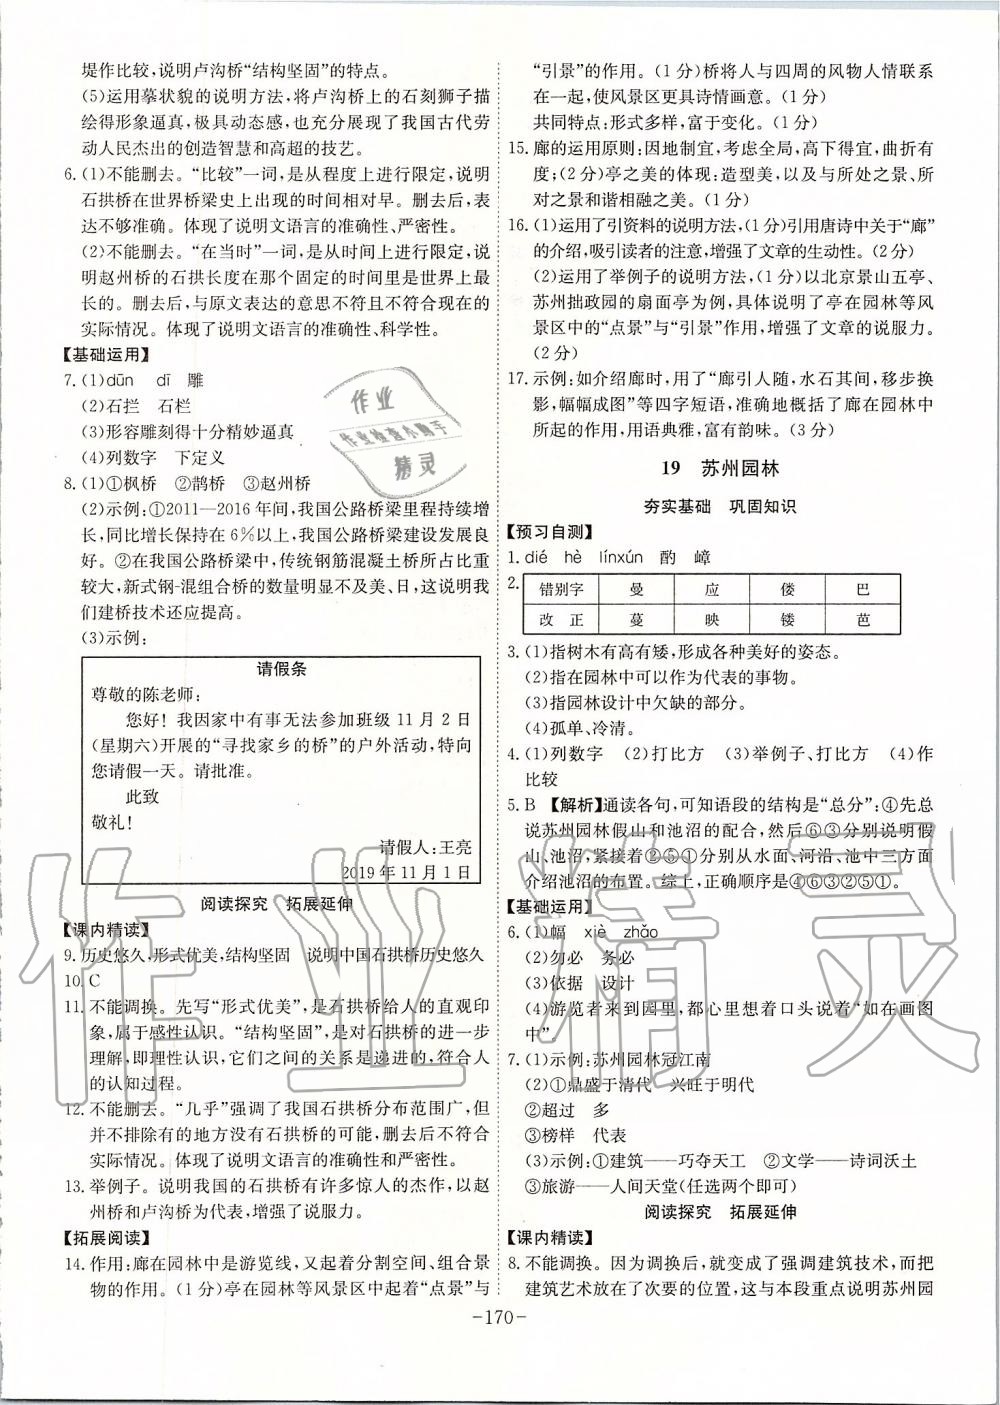 堤作比较,说明卢沟桥“结构坚固”的特点。
(5)运用摹状貌的说明方法,将卢沟桥上的石刻狮子描
绘得形象逼真,极具动态感,也充分展现了我国古代劳
动人民杰出的创造智慧和高超的技艺。
6. (1)不能删去。“比较”一词,是从程度上进行限定,说明
石拱桥在世界桥梁史上出现的时间相对早。删去后,表
达不够准确。体现了说明文语言的准确性、严密性。
(2)不能删去。“在当时”一词,是从时间上进行限定,说
明赵州桥的石拱长度在那个固定的时间里是世界上最
长的。删去后,与原文表达的意思不符且不符合现在的
实际情况。体现了说明文语言的准确性、科学性。
【基础运用】
7. (1)dūn dī 雕
(2)石拦 石栏
(3)形容雕刻得十分精妙逼真
(4)列数字 下定义
8. (1)①枫桥 ②鹊桥 ③赵州桥
(2)示例:①2011—2016年间,我国公路桥梁里程持续增
长,同比增长保持在6%以上,我国公路桥梁建设发展良
好。②在我国公路桥梁中,传统钢筋混凝土桥所占比重
较大,新式钢-混组合桥的数量明显不及美、日,这说明我
们建桥技术还应提高。
(3)示例:
请假条
尊敬的陈老师:
您好!我因家中有事无法参加班级11月2日
(星期六)开展的“寻找家乡的桥”的户外活动,特向
您请假一天。请批准。
此致
敬礼!
请假人:王亮
2019年11月1日
阅读探究 拓展延伸
【课内精读】
9. 历史悠久,形式优美,结构坚固 说明中国石拱桥历史悠久
10. C
11. 不能调换。先写“形式优美”,是石拱桥给人的直观印
象,属于感性认识。“结构坚固”,是对石拱桥的进一步
理解,即理性认识,它们之间的关系是递进的,符合人
的认知过程。
12. 不能删去。“几乎”强调了我国石拱桥分布范围广,但
并不排除有的地方没有石拱桥的可能,删去后不符合
实际情况。体现了说明文语言的准确性和严密性。
13. 举例子。说明我国的石拱桥有许多惊人的杰作,以赵
州桥和卢沟桥为代表,增强了说服力。
【拓展阅读】
14. 作用:廊在园林中是游览线,又起着分割空间、组合景
物的作用。(1分)亭在园林等风景区中起着“点景”与
“引景”的作用。(1分)桥将人与四周的风物人情联系
在一起,使风景区更具诗情画意。(1分)
共同特点:形式多样,富于变化。(1分)
15. 廊的运用原则:因地制宜,考虑全局,高下得宜,曲折有
度;(2分)亭之美的体现:造型美,以及与所处之景、所
对之景和谐相融之美。(1分)
16. (1)运用了引资料的说明方法,(1分)引用唐诗中关于“廊”
的介绍,吸引读者的注意,增强了文章的生动性。(2分)
(2)运用了举例子的说明方法,(1分)以北京景山五亭、
苏州拙政园的扇面亭为例,具体说明了亭在园林等风
景区中的“点景”与“引景”作用,增强了文章的说服力。
(2分)
17. 示例:如介绍廊时,用了“廊引人随,水石其间,移步换
影,幅幅成图”等四字短语,准确地概括了廊在园林中
所起的作用,用语典雅,富有韵味。(3分)
19 苏州园林
夯实基础 巩固知识
【预习自测】
1. dié hè línxún 酌 嶂
2. 错别字 曼 应 偻 巴
改 正 蔓 映 镂 芭
3. (1)指树木有高有矮,形成各种美好的姿态。
(2)指在园林中可以作为代表的事物。
(3)指园林设计中欠缺的部分。
(4)孤单、冷清。
4. (1)列数字 (2)打比方 (3)举例子、打比方 (4)作
比较
5. B 【解析】通读各句,可知语段的结构是“总分”:④先总
说苏州园林假山和池沼的配合,然后⑥③分别说明假
山、池沼,紧接着②⑤①分别从水面、河沿、池中三方面
介绍池沼的布置。综上,正确顺序是④⑥③②⑤①。
【基础运用】
6. (1)幅 xiè zhǎo
(2)勿必 务必
(3)依据 设计
(4)游览者来到园里,都心里想着口头说着“如在画图
中”。
7. (1)示例:苏州园林冠江南
(2)①鼎盛于清代 兴旺于明代
②超过 多
③榜样 代表
(3)示例:①建筑——巧夺天工 ②文学——诗词沃土
③旅游——人间天堂(任选两个即可)
阅读探究 拓展延伸
【课内精读】
8. 不能调换。因为调换后,就变成了强调建筑技术,而把
建筑艺术放在了次要的位置,这与本段重点说明苏州园
-170-
作业
作业检查小助手
精灵
作业精灵